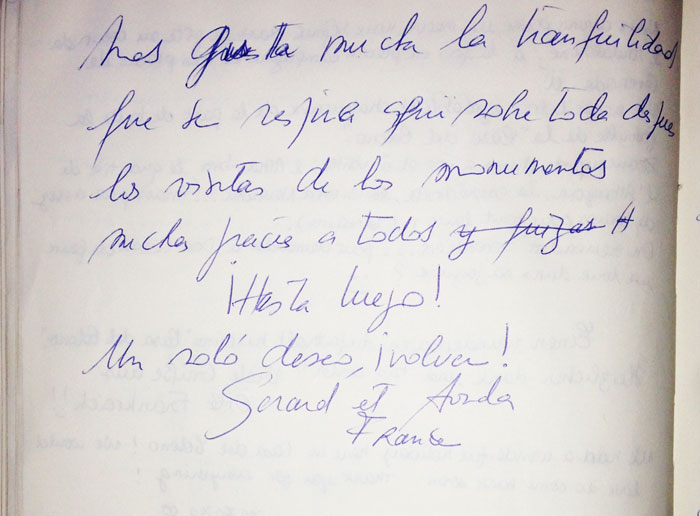 nos gusta mucha la tranquilidad
que se respira aqui sobre toda despues
los visitas de los monumentos
mucha gracia a todos y quizas H
¡Hasta luego!
Un soló deseo, ¡volver!
Gerard et
France